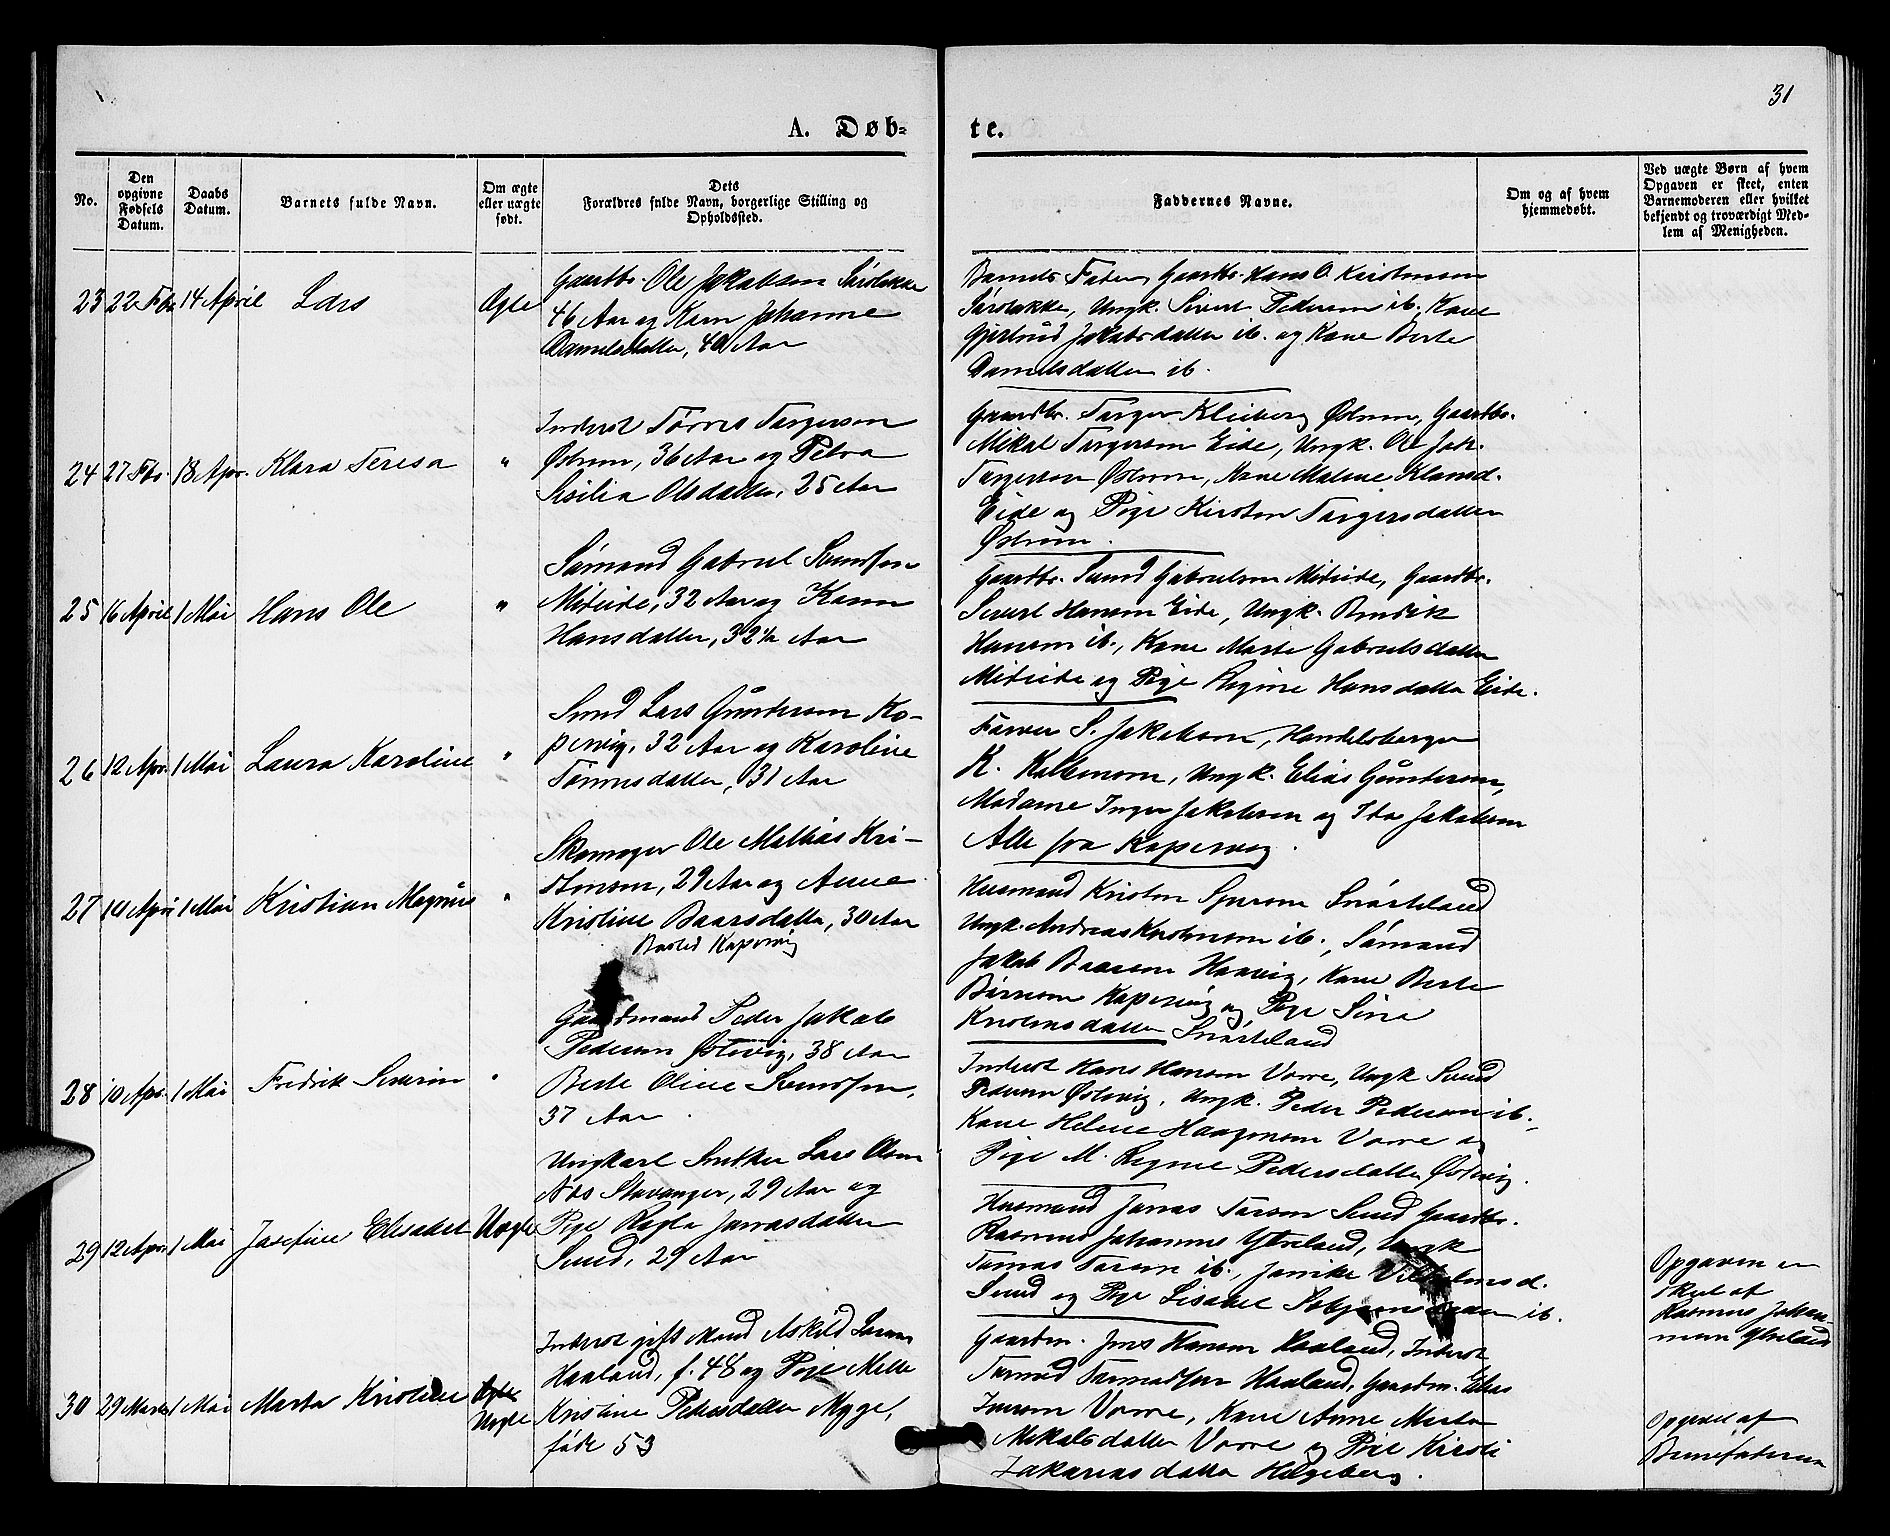 31
A. Døb-
te.
No.
Den opgivne Fødsels Datum.
Daabs Datum.
Barnets fulde Navn.
Om ægte eller uægte født.
Dets Forældres fulde Navn, borgerlige Stilling og Opholdssted.
Faddernes Navne.
Om og af hvem hjemmedøbt.
Ved uægte Børn af hvem Opgaven er skeet, enten Barnemoderen eller hvilket bekjendt og troværdigt Medlem af Menigheden.
23 22 Fbr 14 April Lars Ægte
Gaardbr. Ole Jakobsen
46 Aar og Karn Johanne
Danielsdatter, 40 Aar
Barnets Fader, Gaardbr. Hans O. Kristensen
Ungk. Sivert Pedersen ib. Kone
Gjertrud Jakobsdatter ib. og Kone Berte
Danielsdatter ib.
24 27 Fbr. 18 Apr. Klara Teresa "
Inderst Tørres Torgersen
Østrem, 36 Aar og Petra
Sisilia Olsdatter, 25 Aar
Gaardbr. Torger Kleiberg Østrem, Gaardbr.
Mikal Torgersen Eide, Ungk. Ole Joh.
Torgersen Østrem, Kone Malene Klausd.
Eide og Pige Kirsten Torgersdatter
Østrem.
25 16 April 1 Mai Hans Ole "
Sømand Gabriel Svendsen
Miteide, 32 Aar og Karen
Hansdatter, 32½ Aar
Gaardbr. Svend Gabrielsen Miteide, Gaardbr.
Sivert Hansen Eide, Ungk. Bendik
Hansen ib., Kone Marte Gabrielsdatter
Miteide og Pige Regine Hansdatter Eide.
26 12 Apr. 1 Mai Laura Karoline "
Smed Lars Gundersen Ko-
pervig, 32 Aar og Karoline
Tønnesdatter, 31 Aar
Farver S. Jakobsen, Handelsborger
K. Kolbensen, Ungk. Elias Gundersen,
Madame Inger Jakobsen og Ida Jakobsen
Alle fra Kopervig.
27 14 Apri 1 Mai Kristian Magnus "
Skomager Ole Mathias Kri-
stensen, 29 Aar og Anne
Kristine Baarsdatter, 30 Aar
Bosted Kopervig
Husmand Kristen Snørteland
Ungk. Andreas Kristensen ib., Sømand
Jakob Baarsen Haavig, Kone Berte
Kopervig og Pige Sine
Kristensdatter Snørteland
28 10 Apr. 1 Mai Fredrik Severin "
Gaardmand Peder Jakob
Pedersen Østevig, 38 Aar
Berte Oline Svendsen,
37 Aar.
Inderst Hans Hansen Vorre, Ungk Svend
Pedersen Østevig, Ungk. Peder Pedersen ib.,
Kone Helene Haagensen Vorre og
Pige M. Regine Pedersdatter Østevig.
29 12 Apr. 1 Mai Josefine Elisabet Uægte
Ungkarl Snekker Lars Olsen
Næs Stavanger, 29 Aar og
Pige Ragla Jonasdatter
Sund, 29 Aar
Husmand Jonas Torsen Sund Gaardbr.
Rasmus Johannes Ytreland, Ungk
Tomas Torsen ib., Jannike Vilhelmsd.
Sund og Pige Lisabet ib.
Opgaven er
skeet af
Rasmus Johan-
nesen Ytreland
30 29 Marts 1 Mai Marta Kristine Ægte Uægte
Inderst gift Mand Askild Larsen
Haaland, f. 48 og Pige Mette
Kristine Petersdatter Myge,
født 53
Gaardm. Jens Hansen Haaland, Inderst
Tormod Tormodsen Haaland, Gaardm. Elias
Iversen Vorre, Kone Anne Marta
Mikalsdatter Vorre og Pige Kirsti
Jakariasdatter Helgeberg.
Opgivet af
Barnefaderen